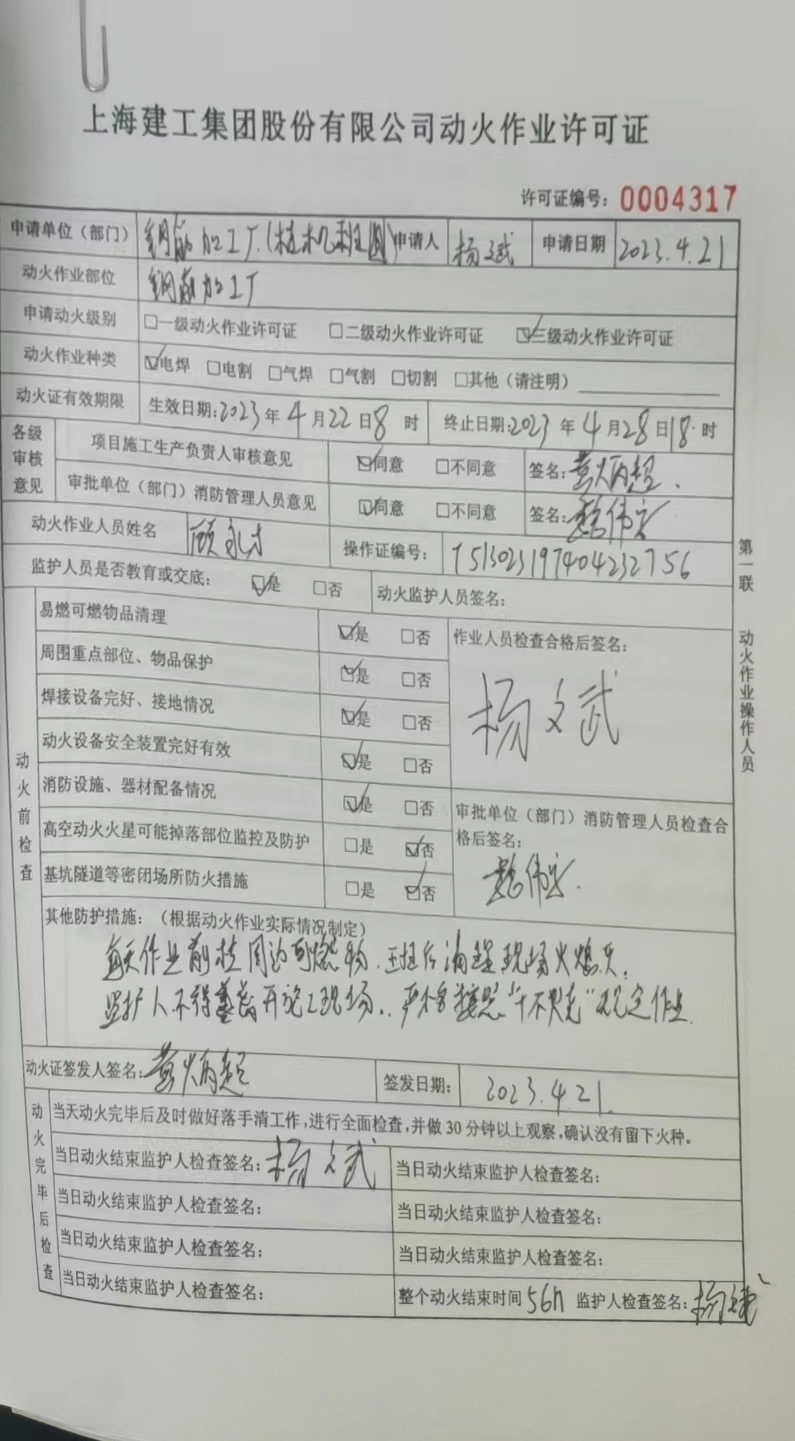 上海建工集团股份有限公司动火作业许可证
许可证编号：0004317
申请单位（部门） 钢筋加工厂（桩机班组） 申请人 杨文斌 申请日期 2023.4.21
动火作业部位 钢筋加工厂
申请动火级别 □一级动火作业许可证 □二级动火作业许可证 ☑三级动火作业许可证
动火作业种类 ☑电焊 □电割 □气焊 □气割 □切割 □其他（请注明）
动火证有效期限 生效日期：2023年4月22日8时 终止日期：2023年4月28日18时
各级审核意见 项目施工生产负责人审核意见 ☑同意 □不同意 签名：黄炳超
审批单位（部门）消防管理人员意见 ☑同意 □不同意 签名：
动火作业人员姓名 顾永才 操作证编号：T513023197404232756
监护人员是否教育或交底： ☑是 □否 动火监护人员签名：
动火前检查
易燃可燃物品清理 ☑是 □否 作业人员检查合格后签名：
周围重点部位、物品保护 ☑是 □否
焊接设备完好、接地情况 ☑是 □否 杨文武
动火设备安全装置完好有效 ☑是 □否
消防设施、器材配备情况 ☑是 □否 审批单位（部门）消防管理人员检查合
高空动火火星可能掉落部位监控及防护 □是 ☑否 格后签名：
基坑隧道等密闭场所防火措施 □是 ☑否
其他防护措施：（根据动火作业实际情况制定）
每天作业前检周边可燃物，现场火熄灭，
监护人不得离开施工现场，严格按照“十不烧”规定作业
动火证签发人签名：黄炳超 签发日期：2023.4.21.
动火完毕后检查
当天动火完毕后及时做好落手清工作，进行全面检查，并做30分钟以上观察，确认没有留下火种。
当日动火结束监护人检查签名：杨文武 当日动火结束监护人检查签名：
当日动火结束监护人检查签名： 当日动火结束监护人检查签名：
当日动火结束监护人检查签名： 当日动火结束监护人检查签名：
当日动火结束监护人检查签名： 整个动火结束时间 监护人检查签名：杨文武
第一联 动火作业操作人员